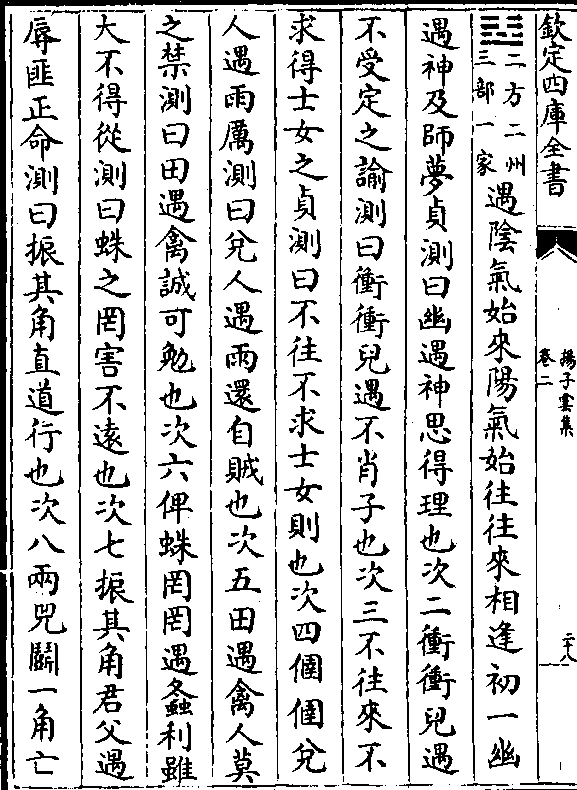 欽定四庫全書
揚子雲集
卷二
二十八
二方二州
三部一家
遇陰氣始來陽氣始往往來相逢初一幽
遇神及師夢貞測曰幽遇神思得理也次二衝衝兒遇
不受定之諭測曰衝衝兒遇不肖子也次三不往來不
求得士女之貞測曰不往不求士女則也次四㑮㑮兌
人遇雨厲測曰兌人遇雨還自賊也次五田遇禽人莫
之禁測曰田遇禽誠可勉也次六俾蛛罔罔遇螽利雖
大不得從測曰蛛之罔害不遠也次七振其角君父遇
辱匪正命測曰振其角直道行也次八兩兕鬭一角亡